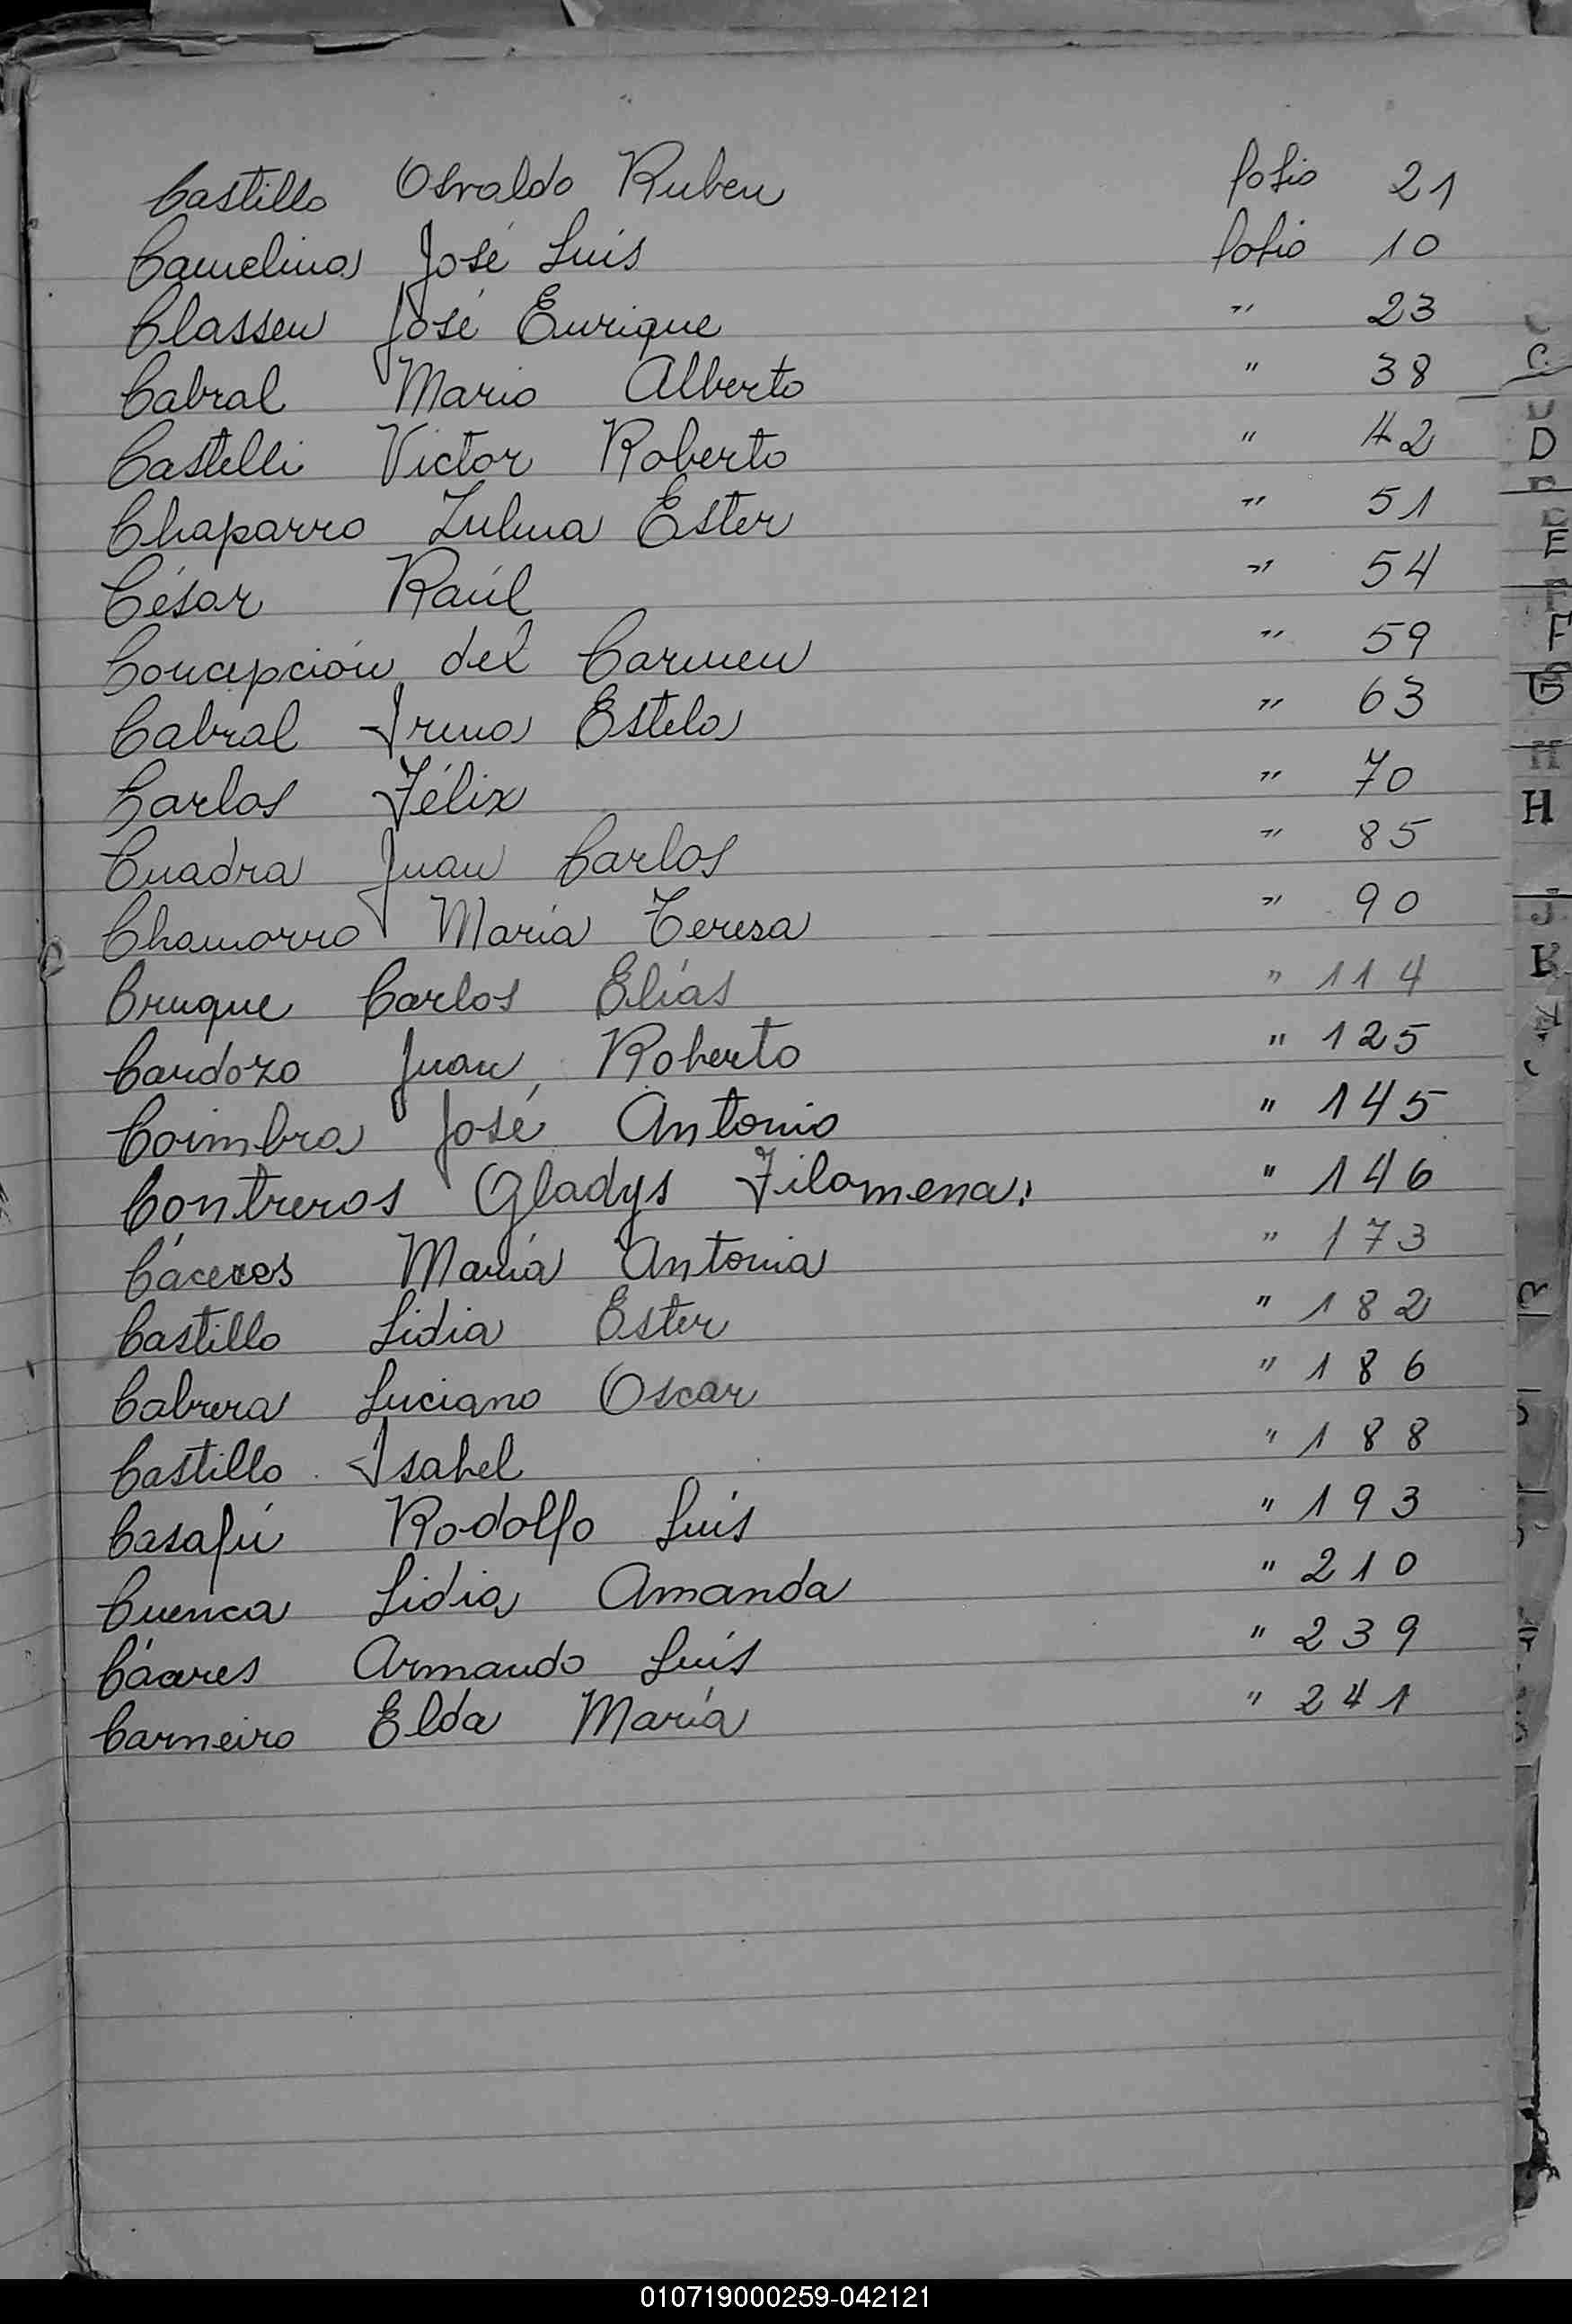 Castillo Osvaldo Ruben folio 21
Camelino José Luis folio 10
Classen José Enrique " 23
Cabral Mario Alberto " 38
Castelli Victor Roberto " 42
Chaparro Zulma Ester " 51
César Raúl " 54
Concepción del Carmen " 59
Cabral Irma Estela " 63
Carlos Félix " 70
Cuadra Juan Carlos " 85
Chamorro María Teresa " 90
Cruque Carlos Elías " 114
Cardozo Juan Roberto " 125
Coimbra José Antonio " 145
Contreras Gladys Filomena " 146
Cáceres María Antonia " 173
Castillo Lidia Ester " 182
Cabrera Luciano Oscar " 186
Castillo Isabel " 188
Casafú Rodolfo Luis " 193
Cuenca Lidia Amanda " 210
Cáceres Armando Luis " 239
Carneiro Elda María " 241
C
D
E
F
G
H
J
K
010719000259-042121